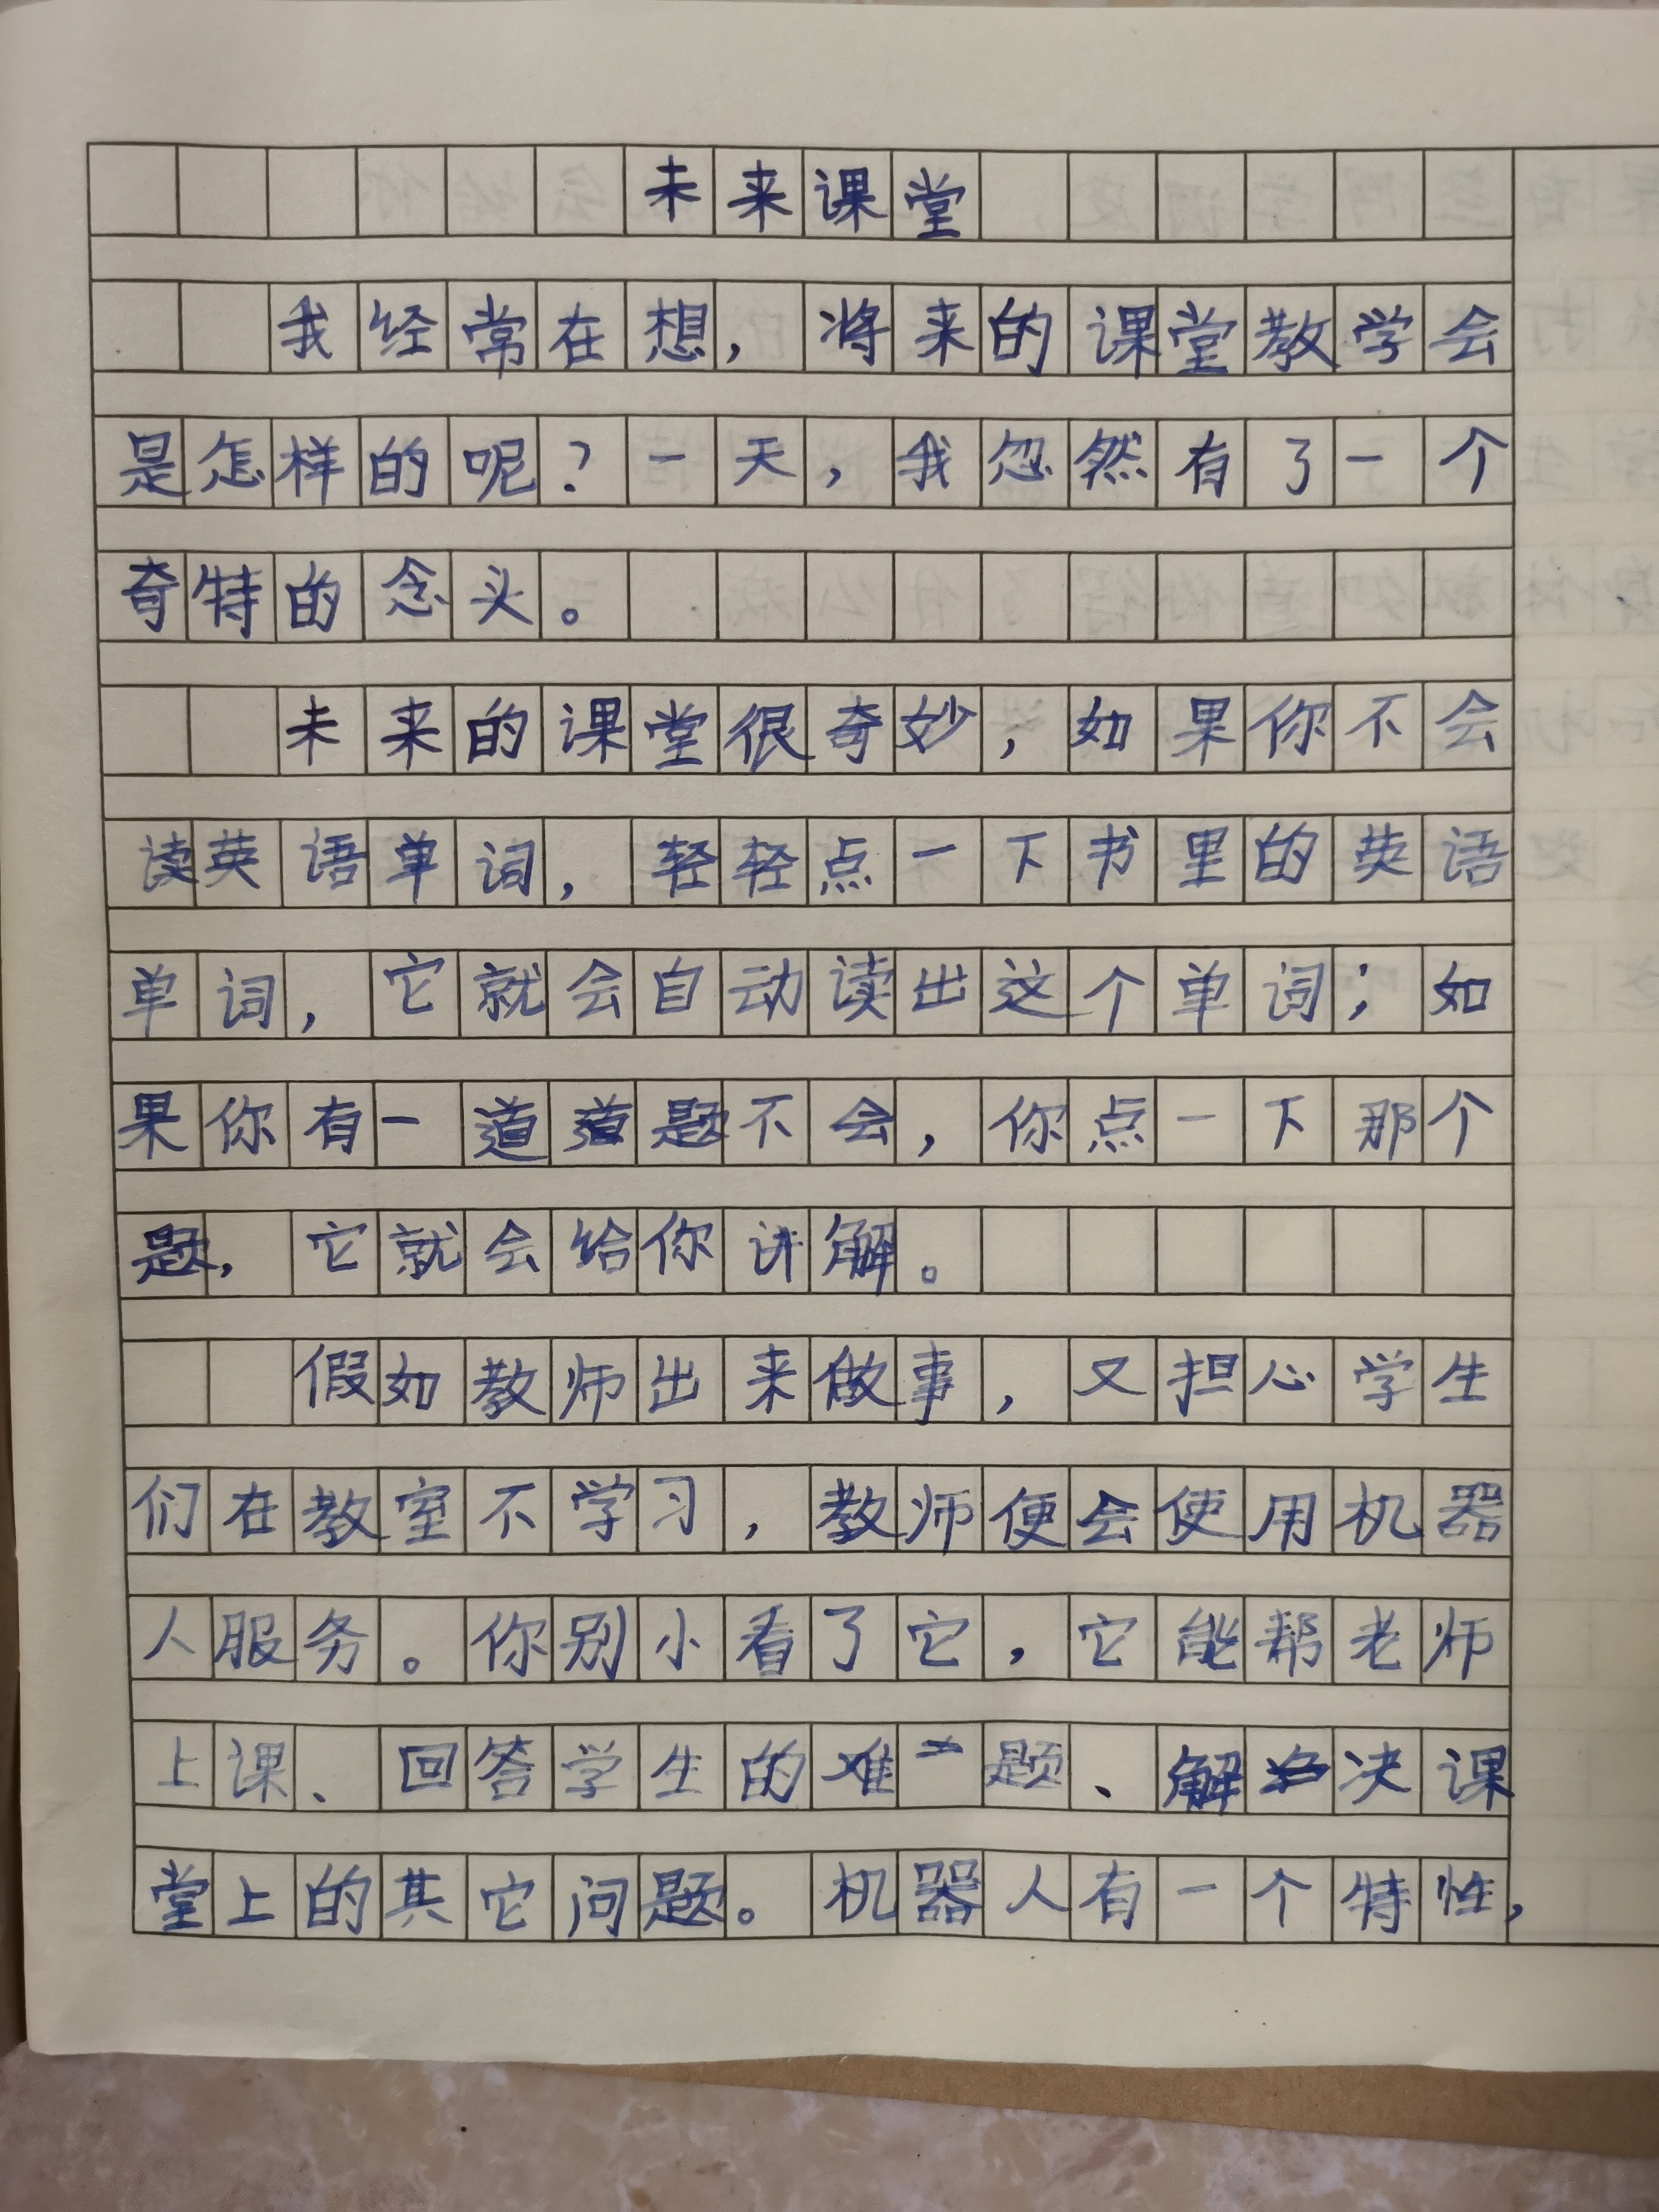 未来课堂
我经常在想，将来的课堂教学会
是怎样的呢？一天，我忽然有了一个
奇特的念头。
未来的课堂很奇妙，如果你不会
读英语单词，轻轻点一下书里的英语
单词，它就会自动读出这个单词；如
果你有一道道题不会，你点一下那个
题，它就会给你讲解。
假如教师出来做事，又担心学生
们在教室不学习，教师便会使用机器
人服务。你别小看了它，它能帮老师
上课、回答学生的难题、解决课
堂上的其它问题。机器人有一个特性，